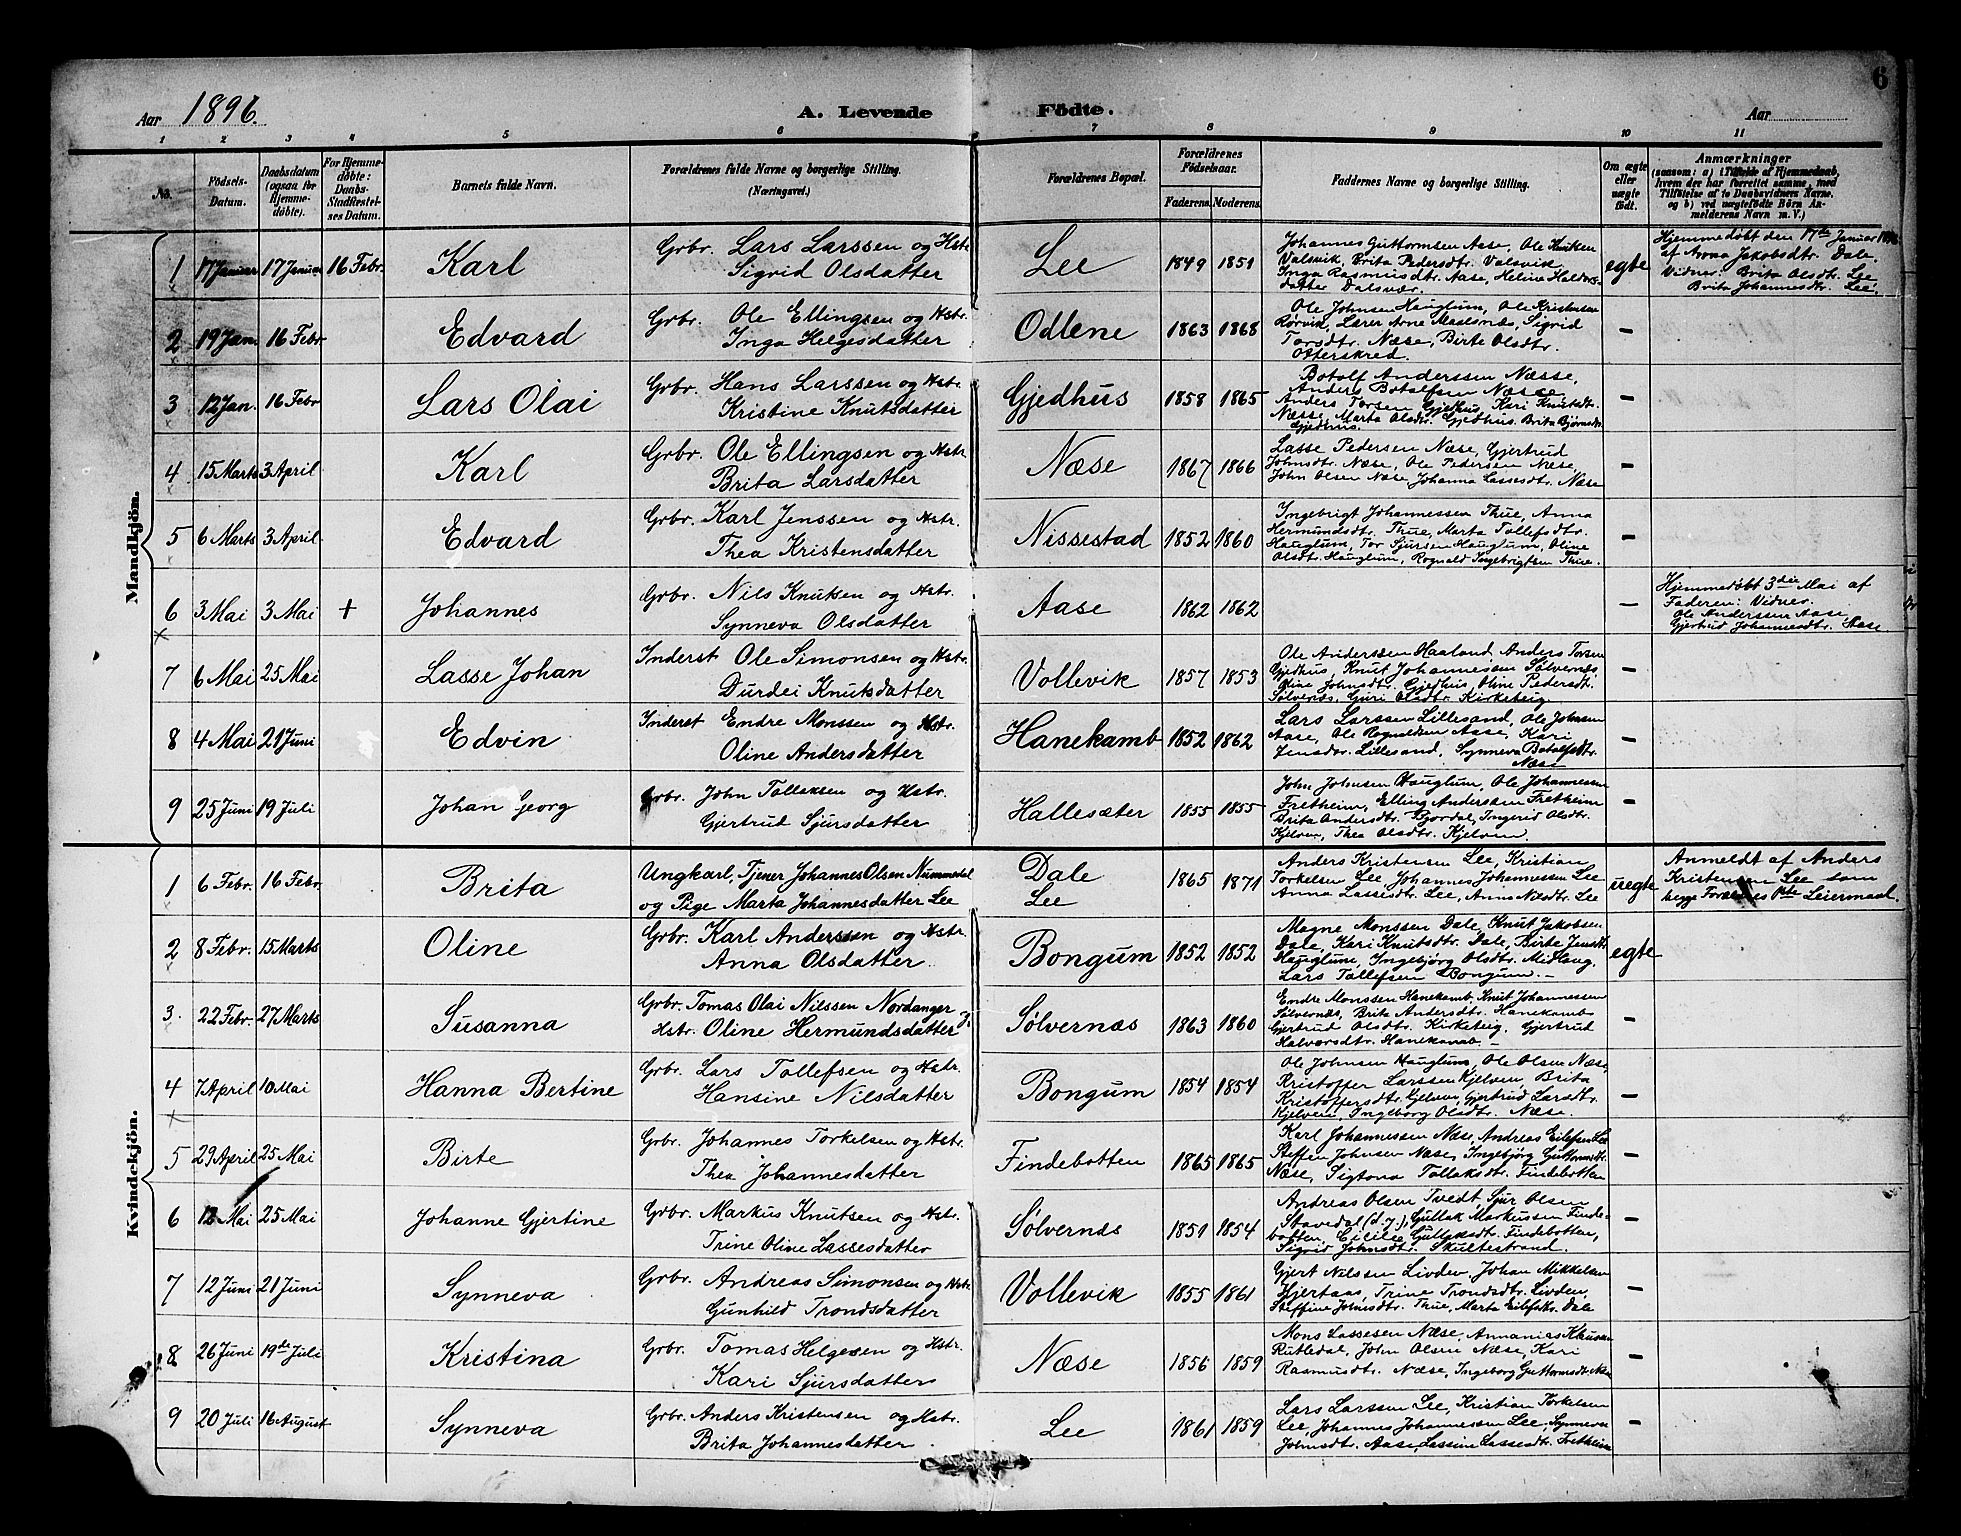 6
Aar 1896. A. Levende Födte. Aar
1 2 3 4 5 6 7 8 9 10 11
No. Födsels-Datum. Daabsdatum (ogsaa for Hjemme-döbte). For Hjemme-döbte: Daabs-Stadfæstel-ses Datum. Barnets fulde Navn. Forældrenes fulde Navne og borgerlige Stilling. (Næringsvei.) Forældrenes Bopæl. Forældrenes Födselsaar. Faderens. Moderens. Faddernes Navne og borgerlige Stilling. Om ægte eller uægte födt. Anmærkninger (saasom: a) i Tilfælde af Hjemmedaab, hvem der har forrettet samme, med Tilföielse af to Daabsvidners Navne. og b) ved uægtefödte Börn An-melderens Navn m. V.)
Mandkjön.
1 17 Januar 17 Januar 16 Febr. Karl Grbr. Lars Larssen og Hstr. Lee 1849 1851 Johannes Guttormsen Aase, Ole Knutsen egte Hjemmedøbt den 17de Januar 1896
Sigrid Olsdatter Valsvik, Brita Pedersdtr. Valsvik af Anna Jakobsdtr. Dale.
Inga Rasmusdtr. Aase, Heline Haldors- Vidner: Brita Olsdtr. Lee
datter Dalsvær. Brita Johannesdtr. Lee.
2 19 Jan. 16 Febr Edvard Grbr. Ole Ellingsen og Hstr. Odlene 1863 1868 Ole Johnsen Hauglum, Ole Kristensen –
Inga Helgesdatter Rørvik, Lærer Arne Masesnæs, Sigrid
Torsdtr. Næse, Birte Olsdtr.
Otterskred.
3 12 Jan. 16 Febr Lars Olai Grbr. Hans Larssen og Hstr. Gjedhus 1858 1865 Botolf Anderssen Næsse, –
Kristine Knutsdatter Anders Botolfsen Næsse
Anders Torsen Gjedhus, Kari Knutsdtr.
Næsse, Marta Olsdtr. Gjedhus. Brita Bjørnsdtr.
Gjedhus.
4 15 Marts 3 April Karl Grbr. Ole Ellingsen og Hstr. Næse 1867 1866 Lasse Pedersen Næse, Gjertrud –
Brita Larsdatter Johnsdtr. Næse, Ole Pedersen Næse,
John Olsen Næse Johanna Lassesdtr. Næse
5 6 Marts 3 April Edvard Grbr. Karl Jenssen og Hstr. Nissestad 1852 1860 Ingebrigt Johannessen Thue, Anna –
Thea Kristensdatter Hermundsdtr. Thue, Marta Tollefsdtr.
Hauglum, Tor Sjursen Hauglum, Oline
Olsdtr. Hauglum, Rognald Ingebrigtsen Thue.
6 3 Mai 3 Mai + Johannes Grbr. Nils Knutsen og Hstr. Aase 1862 1862 – Hjemmedøbt 3die Mai af
Synneva Olsdatter Faderen: Vidner.
Ole Anderssen Aase,
Gjertrud Johannesdtr. Aase.
7 6 Mai 25 Mai Lasse Johan Inderst Ole Simonsen og Hstr. Vollevik 1857 1853 Ole Anderssen Haaland, Anders Torsen –
Durdei Knutsdatter Gjedhus, Knut Johannessen Sølvernæs,
Oline Johnsdtr. Gjedhus Oline Pedersdtr.
Sølvernæs. Guri Olsdtr. Kirketeig
8 4 Mai 21 Juni Edvin Inderst Endre Monssen og Hstr. Hanekamb 1852 1862 Lars Larssen Lillesand, Ole Johnsen –
Oline Andersdatter Aase, Ole Rognaldsen Aase, Kari
Jensdtr. Lillesand, Synneva Botolfsdtr.
Næse
9 25 Juni 19 Juli Johan Georg Grbr. John Tollaksen og Hstr. Hallesæter 1855 1855 John Johnsen Hauglum, Ole Johannessen –
Gjertrud Sjursdatter Fretheim, Elling Anderssen Fretheim
Brita Andersdtr. Bjordal, Ingerid Olsdtr.
Kjelven, Thea Olsdtr. Kjelven
Kvindekjön.
1 6 Febr. 16 Febr. Brita Ungkarl, Tjener Johannes Olsen Nummedal Dale 1865 1871 Anders Kristensen Lee, Kristian uegte Anmeldt af Anders
og Pige Marta Johannesdatter Lee Lee Torkelsen Lee Johannes Johannessen Lee Kristensen Lee som
Anna Lassesdtr. Lee, begge Forældres 1ste Leiermaal.
2 8 Febr. 15 Marts Oline Grbr. Karl Anderssen og Hstr. Bongum 1852 1852 Magne Monssen Dale, Knut Jakobsen egte
Anna Olsdatter. Dale, Kari Knutsdtr. Dale, Birte Jensdtr.
Hauglum, Ingebjørg Olsdtr. Midlang.
Lars Tollefsen Bongum. –
3. 22 Febr. 27 Marts Susanna Grbr. Tomas Olai Nilssen Nordanger og Sølvernæs 1863 1860 Endre Monssen Hanekamb. Knut Johannessen –
Hstr. Oline Hermundsdatter Sølvernæs, Brite Andersdtr. Hanekamb
Gjertrud Olsdtr. Kirketeig, Gjertrud
Halvorsdtr. Hanekamb. –
4 7 April 10 Mai Hanna Bertine Grbr. Lars Tollefsen og Hstr. Bongum 1854 1854 Ole Johnsen Hauglum, Ole Olsen Næse, –
Hansine Nilsdatter Kristoffer Larssen Kjelven, Brita
Kristoffersdtr. Kjelven, Gjertrud Larsdtr.
Kjelven, Ingeborg Olsdtr. Næse.
5 29 April 25 Mai Birte Grbr. Johannes Torkelsen og Hstr. Findebotten 1865 1865 Karl Johannessen Næse, Andreas Eilefsen Lee –
Thea Johannesdatter Steffen Johnsen Næse, Ingebjørg Guttormsdtr.
Næse, Sigtona Tollaksdtr. Findebotten
6 12 Mai 25 Mai Johanne Gjertine Grbr. Markus Knutsen og Hstr. Sølvernæs 1851 1854 Andreas Olsen Tvedt, Sjur Olsen –
Trine Oline Lassesdatter Stavedal (d.y.), Gullak Markussen Finde-
botten, Gullaksdtr. Findebotten,
Sigrid Johnsdtr. Skultestrand.
7 12 Juni 21 Juni Synneva Grbr. Andreas Simonsen og Hstr. Vollevik 1855 1861 Gjert Nilssen Livden, Johan Mikkelsen –
Gunhild Trondsdatter Hjertaas, Trine Trondsdtr. Livden,
Steffine Johnsdtr. Thue, Marta Eilefsdtr. Dale
8 26 Juni 19de Juli Kristina Grbr. Tomas Helgesen og Hstr. Næse 1856 1859 Mons Lassesen Næse, Annanias Klausen –
Kari Sjursdatter Rutledal, John Olsen Næse, Kari
Rasmusdtr. Næse, Ingeborg Guttormsdtr. Næse
9 20 Juli 16 August Synneva Grbr. Anders Kristensen og Hstr. Lee 1861 1859 Lars Larssen Lee, Kristian Torkelsen –
Brita Johannesdatter. Lee, Johannes Johannessen Lee, Synneva
Johnsdtr. Aase, Lassine Lassesdtr. Fretheim